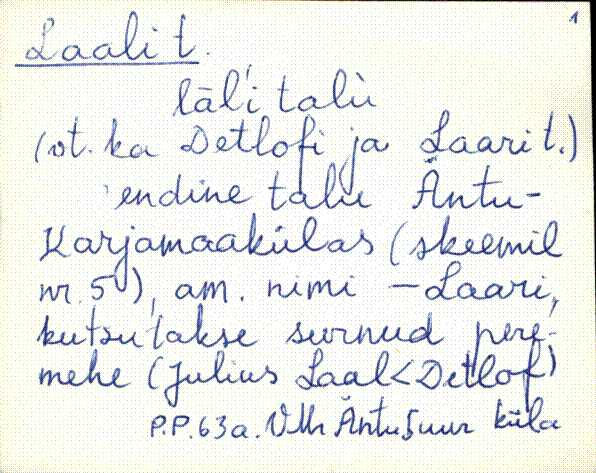 1
Laali t.
lāl'i talù
(vt. ka Detlofi ja Laari t.)
endine talu Äntu-
Karjamaakülas (skeemil
nr. 5), am. nimi - Laari,
kutsutakse surnud pere-
mehe (Julius Laal<Detlof)
P.P. 63a. VMr Äntu Suur küla